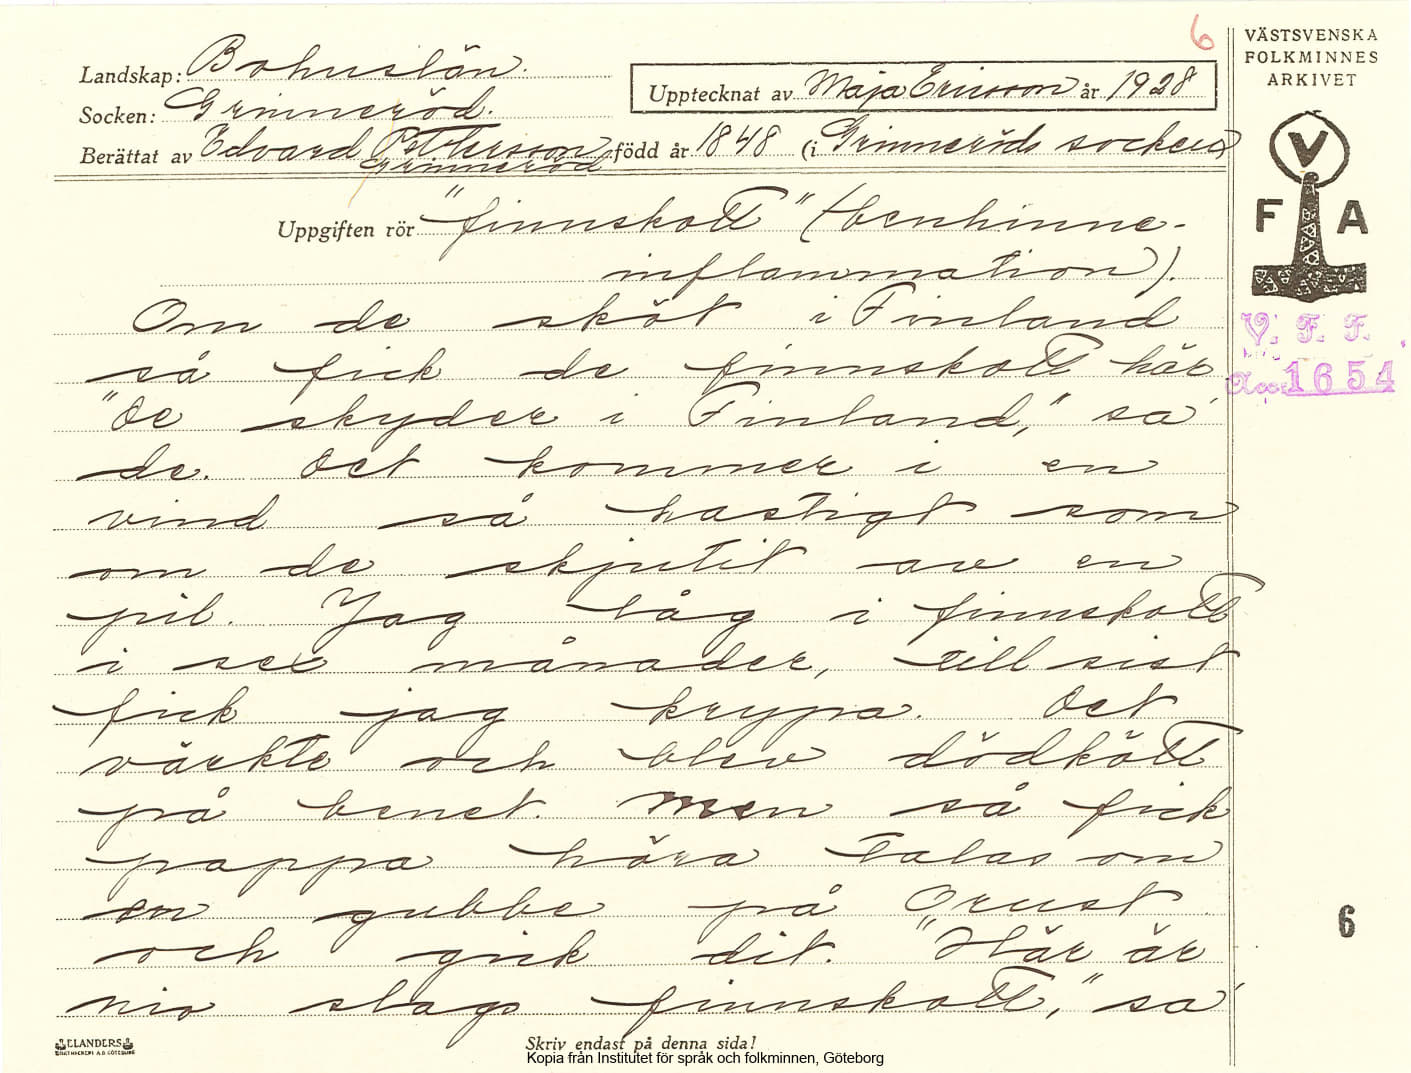 6
VÄSTSVENSKA
FOLKMINNES
ARKIVET
Landskap: Bohuslän.
Upptecknat av Maja Ericsson år 1928
Socken: Grinneröd.
Berättat av Edvard Pettersson född år 1848 (i Grinneröds socken)
Grinneröd
V
F A
Uppgiften rör "finnskott" (benhinne-
inflammation).
V. F. F.
Acc. 1654
Om de sköt i Finland
så fick de finnskott här
"De skyder i Finland," sa'
de. Det kommer i en
vind så hastigt som
om de skjutit av en
pil. Jag låg i finnskott
i sex månader, till sist
fick jag krypa. Det
värkte och blev dödkött
på benet. Men så fick
pappa höra talas om
en gubbe på Orust
och gick dit. "Här är
nio slags finnskott," sa'
6
ELANDERS
BOKTRYCKERI A.B. GÖTEBORG
Skriv endast på denna sida!
Kopia från Institutet för språk och folkminnen, Göteborg